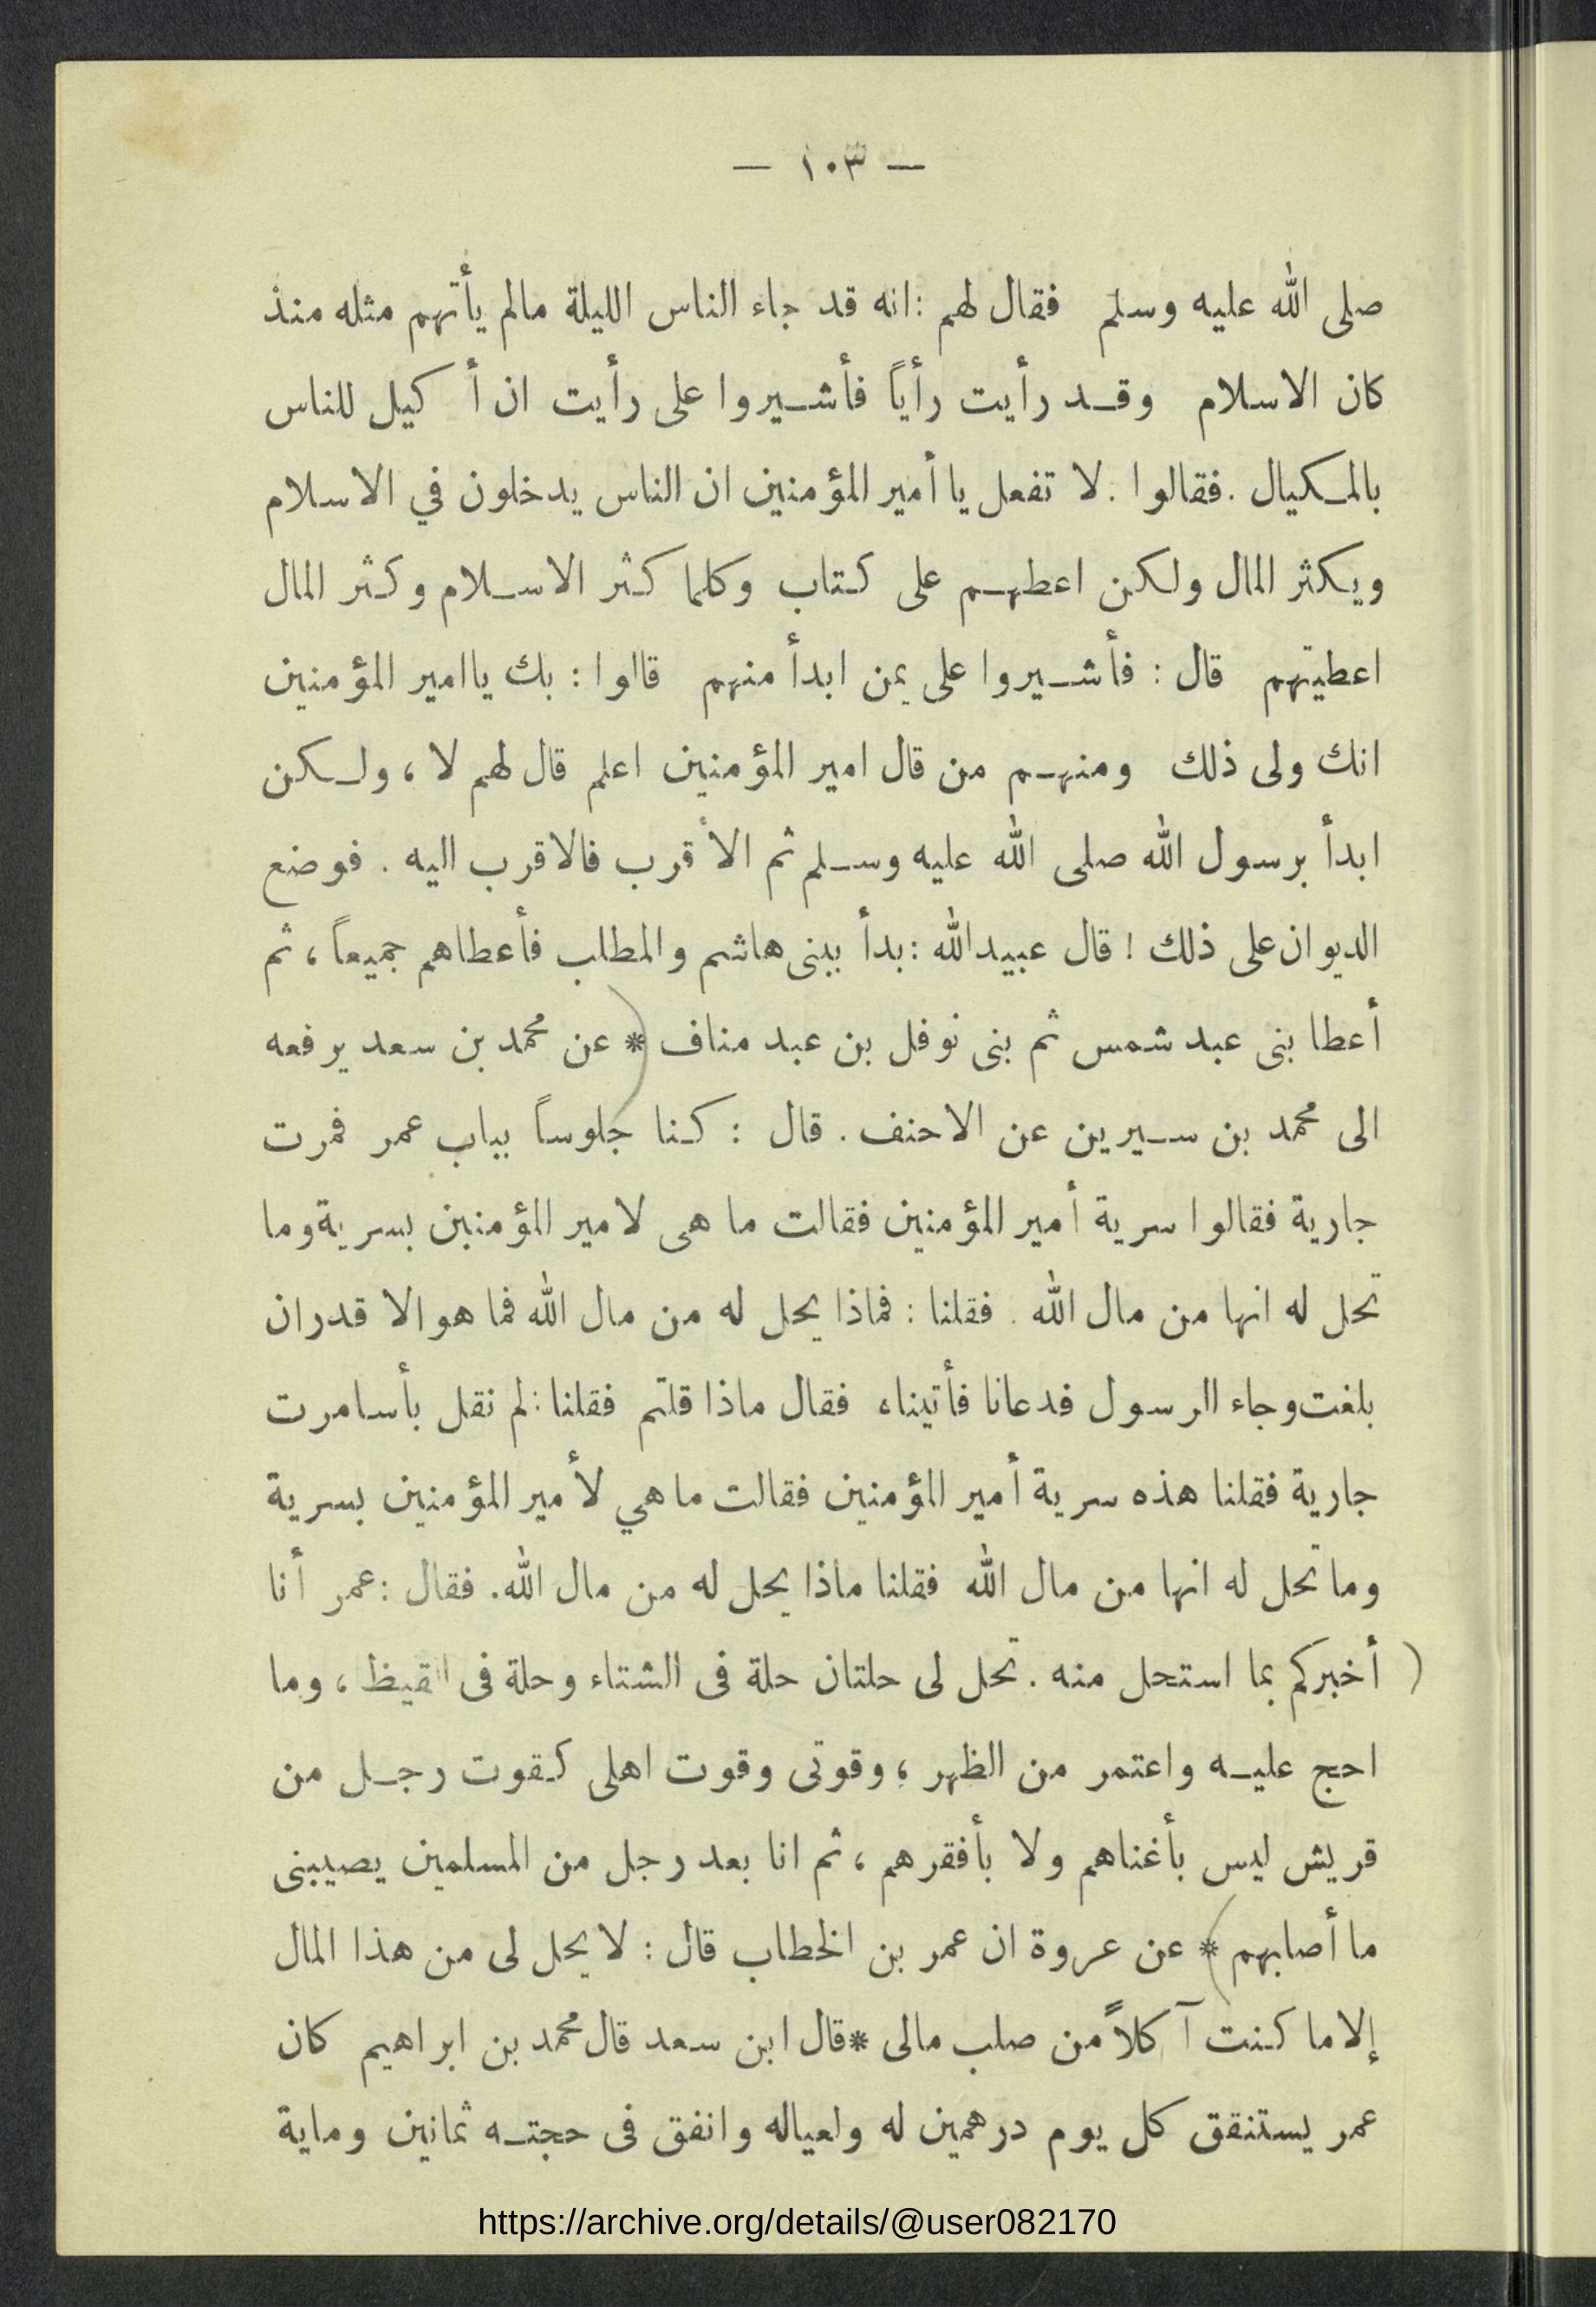 — ١٠٣ —
صلى الله عليه وسلم فقال لهم : انه قد جاء الناس الليلة مالم يأتهم مثله منذ
كان الاسلام وقد رأيت رأياً فأشيروا على رأيت ان أ كيل للناس
بالمكيال . فقالوا . لا تفعل يا أمير المؤمنين ان الناس يدخلون في الاسلام
ويكثر المال ولكن اعطهم على كتاب وكلما كثر الاسلام وكثر المال
اعطيتهم قال : فأشيروا على بمن ابدأ منهم قالوا : بك ياامير المؤمنين
انك ولى ذلك ومنهم من قال امير المؤمنين اعلم قال لهم لا ، ولكن
ابدأ برسول الله صلى الله عليه وسلم ثم الأقرب فالاقرب اليه . فوضع
الديوان على ذلك ! قال عبيدالله : بدأ ببنى هاشم والمطلب فأعطاهم جميعاً ، ثم
أعطا بنى عبد شمس ثم بنى نوفل بن عبد مناف * عن محمد بن سعد يرفعه
الى محمد بن سيرين عن الاحنف . قال : كنا جلوساً بباب عمر فمرت
جارية فقالوا سرية أمير المؤمنين فقالت ما هى لامير المؤمنين بسرية وما
تحل له انها من مال الله . فقلنا : فماذا يحل له من مال الله فما هو الا قدر ان
بلغت وجاء الرسول فدعانا فأتيناه فقال ماذا قلتم فقلنا : لم نقل بأسا مرت
جارية فقلنا هذه سرية أمير المؤمنين فقالت ما هي لأمير المؤمنين بسرية
وما تحل له انها من مال الله فقلنا ماذا يحل له من مال الله . فقال : عمر أنا
( أخبركم بما استحل منه . تحل لى حلتان حلة فى الشتاء وحلة فى القيظ ، وما
احج عليه واعتمر من الظهر ، وقوتى وقوت اهلى كقوت رجل من
قريش ليس بأغناهم ولا بأفقرهم ، ثم انا بعد رجل من المسلمين يصيبنى
ما أصابهم * عن عروة ان عمر بن الخطاب قال : لا يحل لى من هذا المال
إلا ما كنت آ كلاً من صلب مالى * قال ابن سعد قال محمد بن ابراهيم كان
عمر يستنقق كل يوم درهمين له ولعياله وانفق فى حجته ثمانين وماية
https://archive.org/details/@user082170